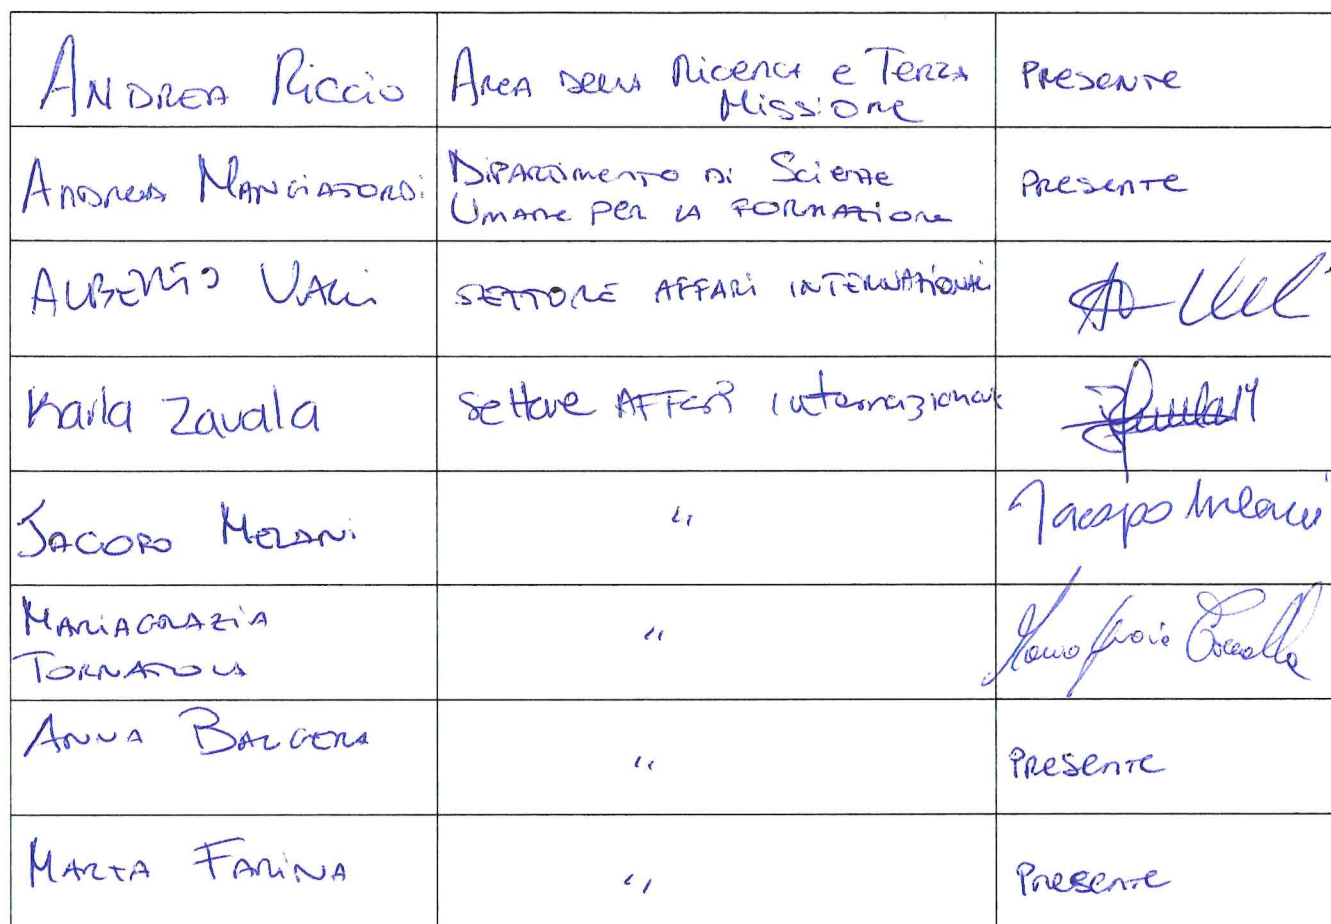 ANDREA RICCIO AREA DELLA RICERCA E TERZA
MISSIONE PRESENTE
ANDREA MANGIATORDI DIPARTIMENTO DI SCIENZE
UMANE PER LA FORMAZIONE PRESENTE
ALBERTO VALLI SETTORE AFFARI INTERNAZIONALI
Karla Zavala Settore AFFARI Internazionali
JACOPO MELANI " Jacopo Melani
MARIAGRAZIA
TORNATOLA "
ANNA BALGERA " PRESENTE
MARTA FARINA " PRESENTE